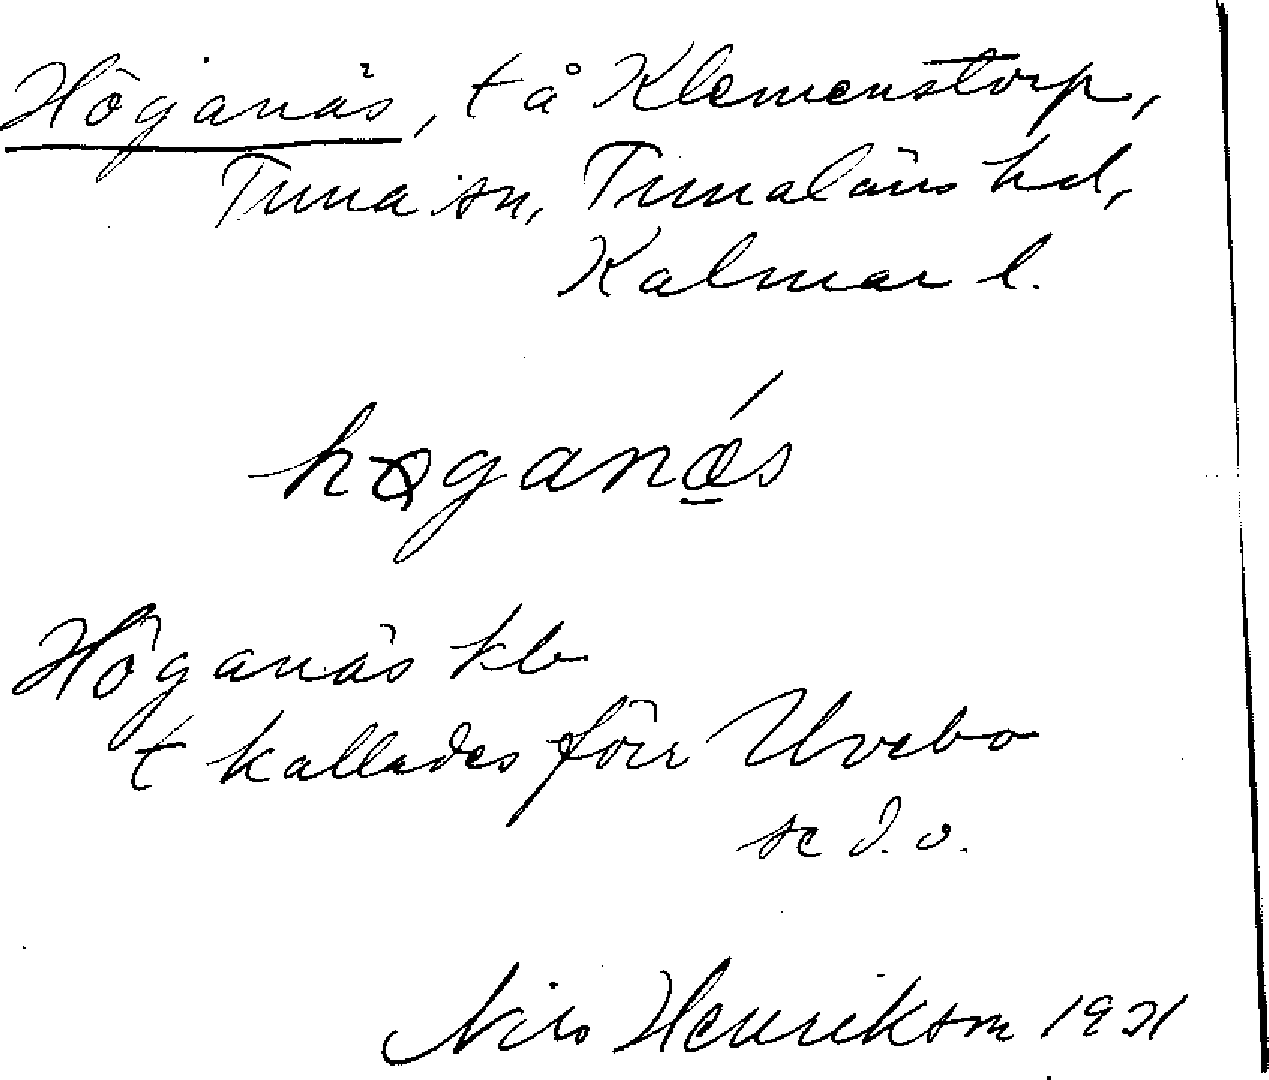 Höganäs, t å Klemenstorp,
Tuna sn, Tunaläns hd,
Kalmar l.
høganǽs
Höganäs kb
t kallades förr Uvebo
se d. o.
Nils Henrikson 1921